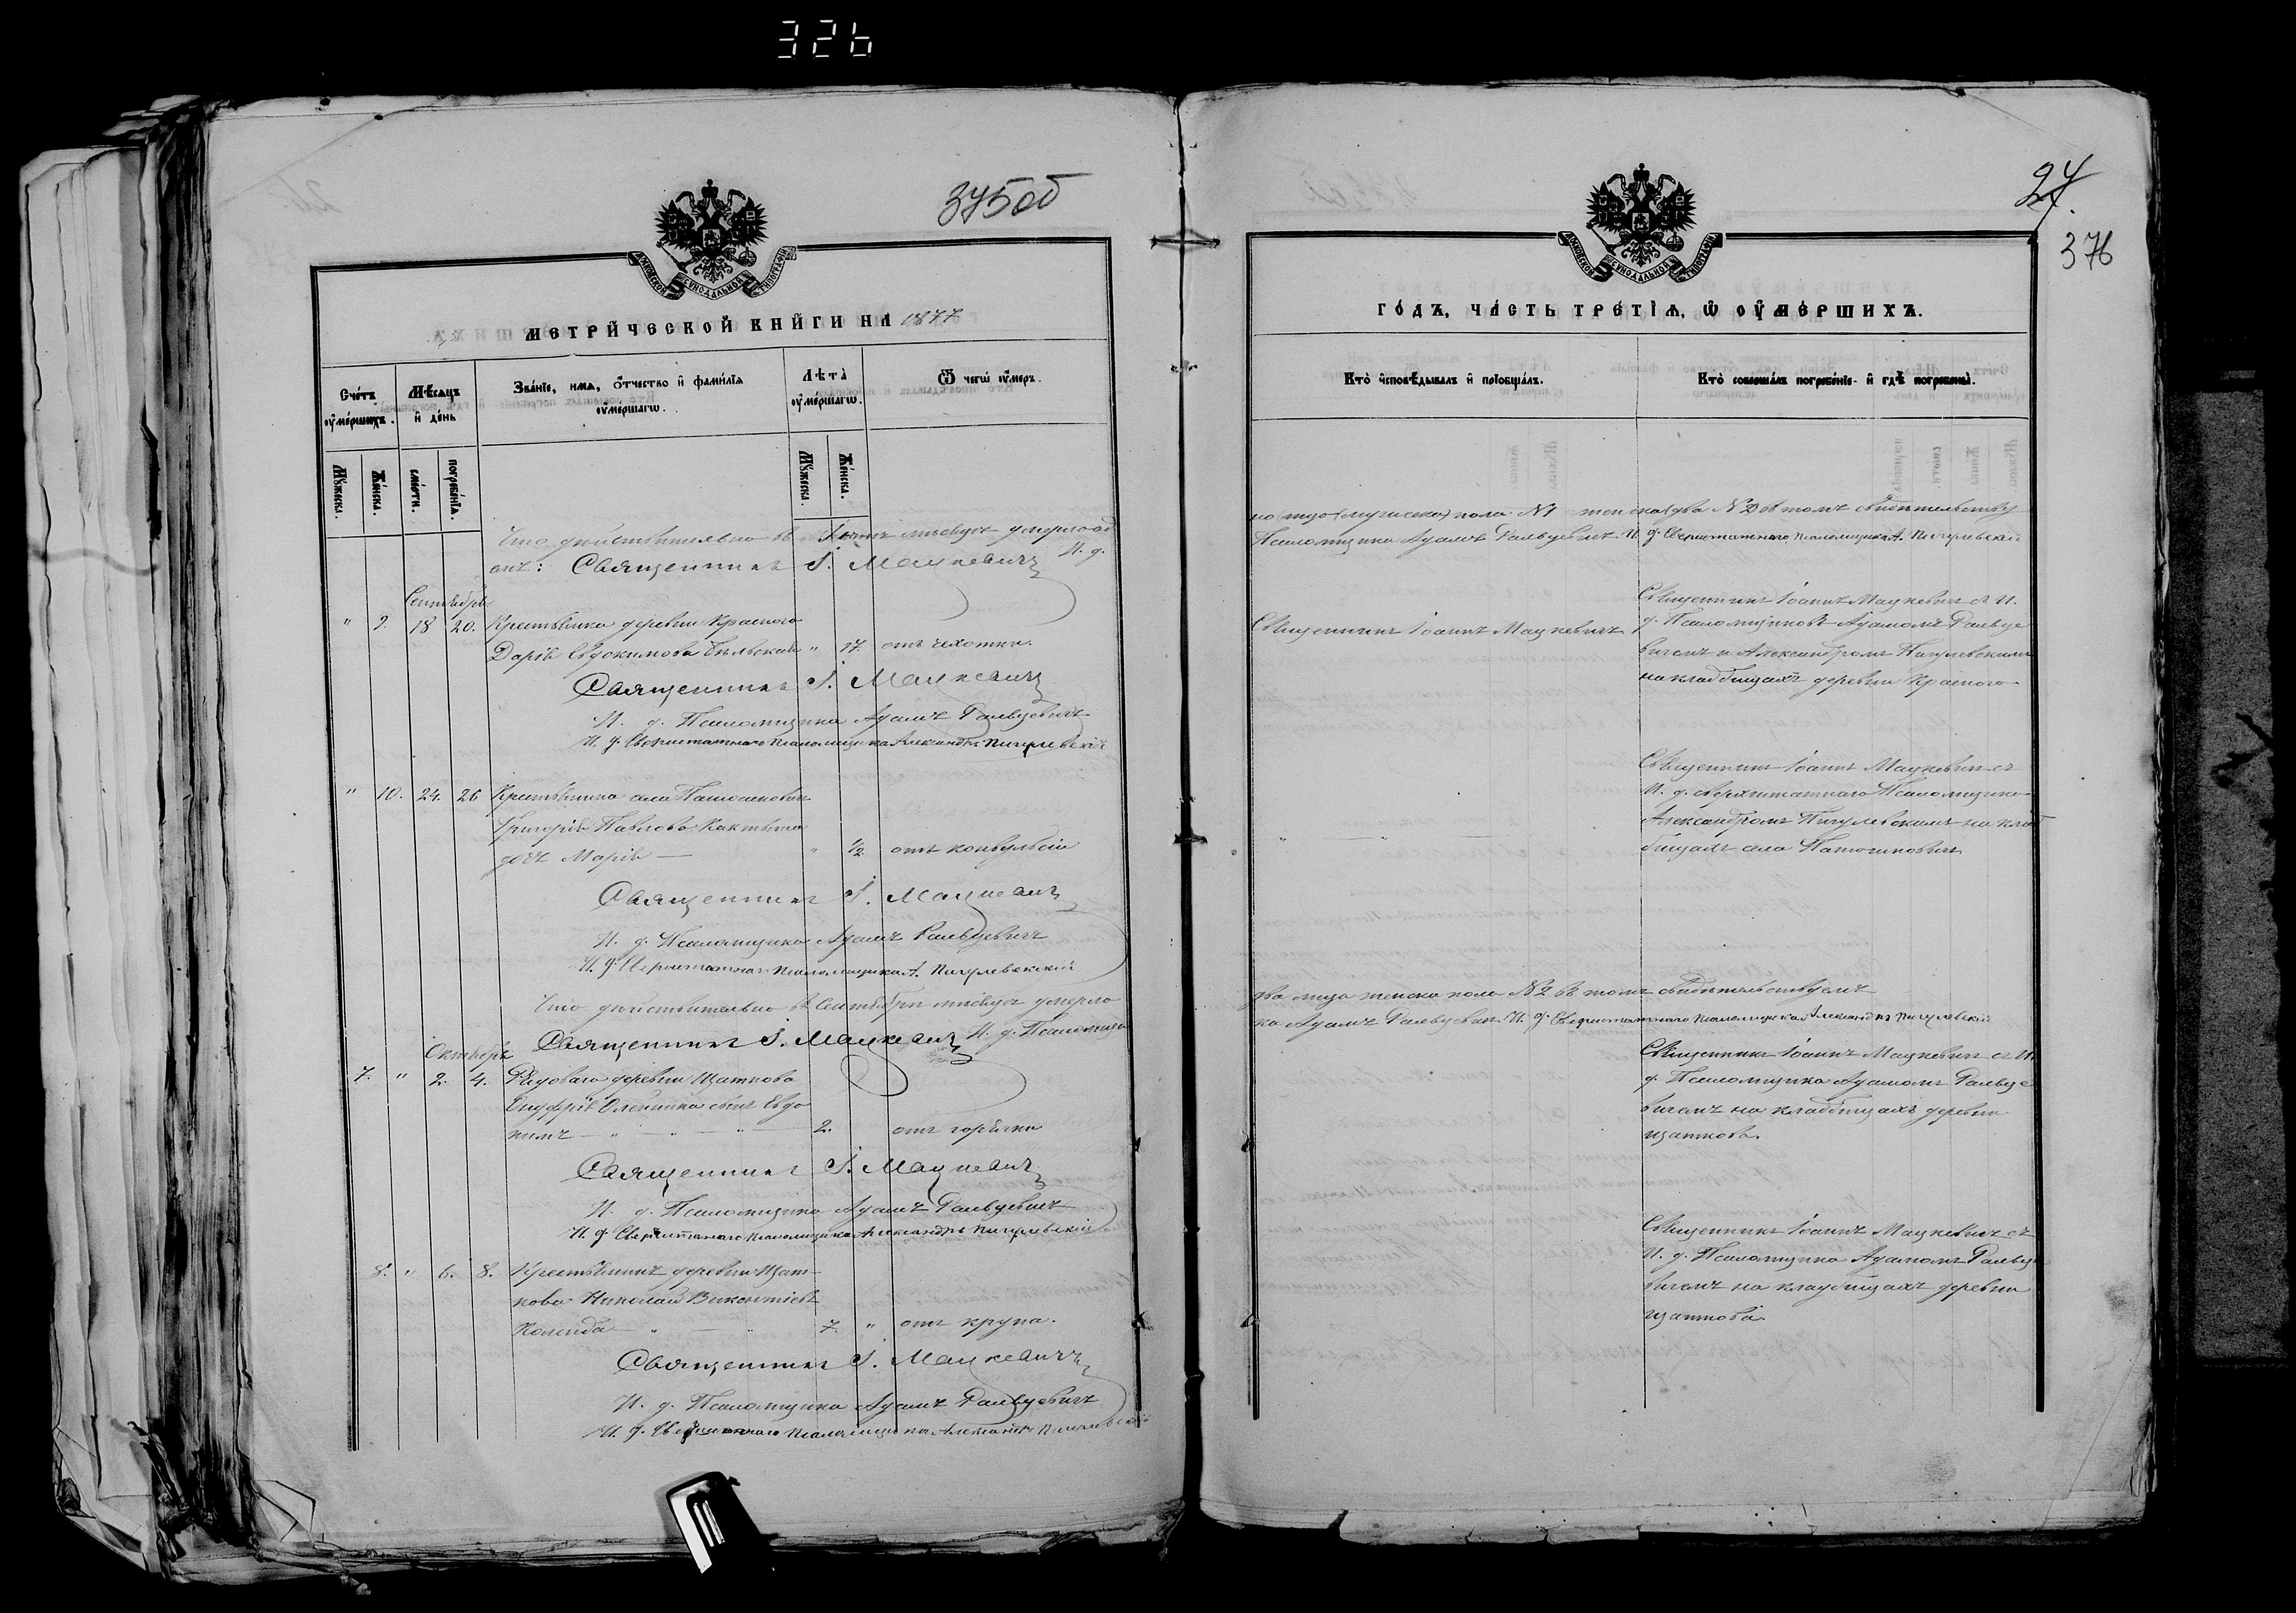 326
375 об
МОСКОВСКОЙ СѴНОДАЛЬНОЙ ТИПОГРАФІИ
МЕТРИ́ЧЕСКОЙ КНИ́ГИ НА 1877
Сче́тъ ᲂу҆ме́ршихъ.
Мѣ́сяцъ и҆ де́нь
Зва́нїе, имѧ, ѻ҆́тчество и҆ фами́лїѧ ᲂу҆ме́ршагѡ.
Лѣта̀ ᲂу҆ме́ршагѡ.
Ѿ чегѡ̀ ᲂу҆́меръ.
Мꙋ́жеска.
Же́нска.
сме́рти.
погребе́нїѧ.
Мꙋ́жеска.
Же́нска.
Что действительно въ мѣсяцѣ умерло од
Священникъ І. Мацкевичъ И. д.
Сентябрь
" 9. 18 20. Крестьянка деревни Красного
Дарія Евдокимова Бѣльская " 17. отъ чахотки.
Священникъ І. Мацкевичъ
И. д. Псаломщика Адамъ Равцевичъ
И. д. Сверхштатнаго Псаломщика Александръ Пигулевскій
" 10. 24. 26 Крестьянина села
Григорія Павлова
дочь Марія — " 1/2 отъ конвульсіи
Священникъ І. Мацкевичъ
И. д. Псаломщика Адамъ Равцевичъ
И. д. Псаломщика А. Пигулевскій
Что дѣйствительно въ Сентябрѣ мѣсяцѣ умерло
Священникъ І. Мацкевичъ И. д. Псаломщи
Октябрь
7. " 2. 4. Рядоваго деревни Щаткова
Онуфрія сынъ Евдо
кимъ — " — " — " — 2. отъ горячки
Священникъ І. Мацкевичъ
И. д. Псаломщика Адамъ Равцевичъ
И. д. Сверхштатнаго Псаломщика Александръ Пигулевскій
8. " 6. 8. Крестьянинъ деревни Щат-
кова Николай Викентіевъ
Коленда " — " 7. " отъ крупа.
Священникъ І. Мацкевичъ
И. д. Псаломщика Адамъ Равцевичъ
И. д. Сверхштатнаго Псаломщика Александръ Пигулевскій
27.
376
МОСКОВСКОЙ СѴНОДАЛЬНОЙ ТИПОГРАФІИ
ГО́ДЪ, ЧА́СТЬ ТРЕ́ТЇѦ, Ѽ ОУ҆МЕ́РШИХЪ.
Кто̀ и҆сповѣ́дывалъ и҆ прїобща́лъ.
Кто̀ соверша́лъ погребе́нїе и҆ гдѣ̀ погребены̀.
но лицо (мужеска) пола № 1 женска (два № 2) въ томъ свидѣтельству
Псаломщика Адамъ Равцевичъ И. д. Сверхштатнаго Псаломщика А. Пигулевскій
Священникъ Іоаннъ Мацкевичъ
Священникъ Іоаннъ Мацкевичъ съ И.
д. Псаломщиковъ Адамомъ Равце
вичемъ и Александромъ Пигулевскимъ
на кладбищахъ деревни Красного
" — " —
Священникъ Іоаннъ Мацкевичъ съ
И. д. сверхштатнаго Псаломщика
Александромъ Пигулевскимъ на клад
бищахъ села
два лица женска пола № 2 въ томъ свидѣтельствуемъ
ка Адамъ Равцевичъ И. д. Сверхштатнаго Псаломщика Александръ Пигулевскій
Священникъ Іоаннъ Мацкевичъ съ И.
д. Псаломщика Адамомъ Равце
вичемъ на кладбищахъ деревни
Щаткова.
Священникъ Іоаннъ Мацкевичъ съ
И. д. Псаломщика Адамомъ Равце
вичемъ на кладбищахъ деревни
Щаткова.